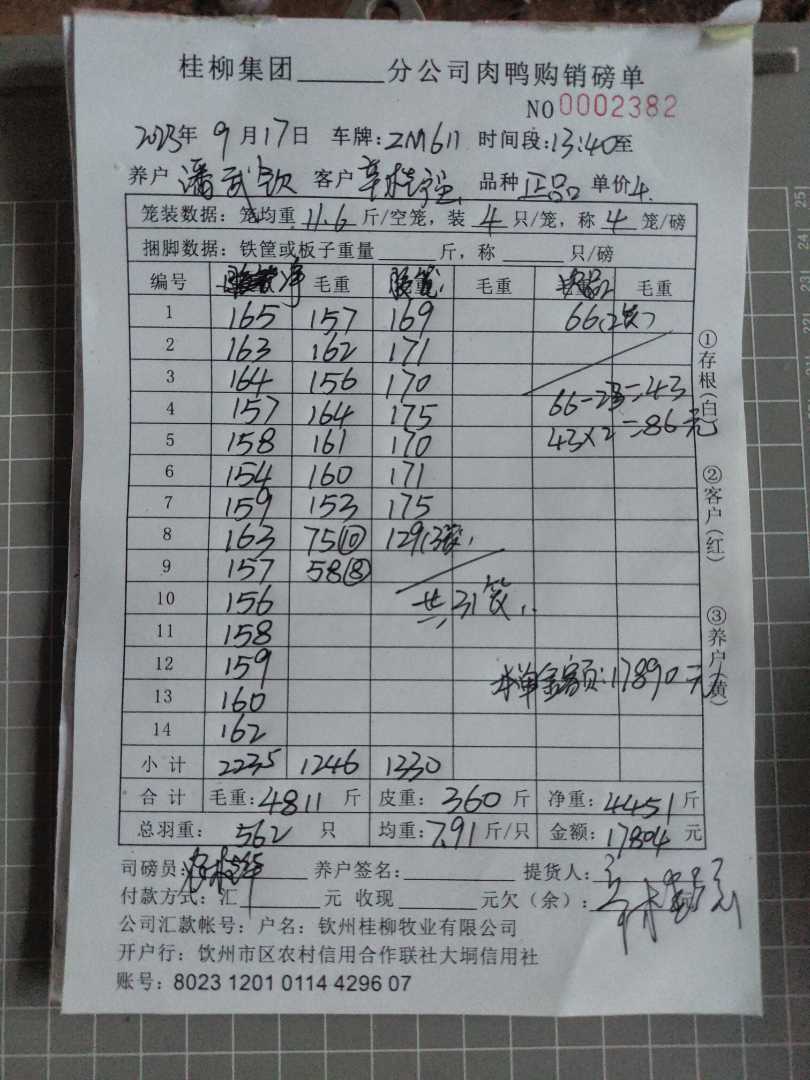 桂柳集团______分公司肉鸭购销磅单
NO 0002382
2023年 9月17日 车牌:ZM611 时间段:13:40至
养户 潘武钦 客户 品种 正品 单价4.
笼装数据:笼均重 11.6 斤/空笼,装 4 只/笼,称 4 笼/磅
捆脚数据:铁筐或板子重量____斤,称____只/磅
编号 净 毛重 毛重 毛重
1 165 157 169 66(2笼)
2 163 162 171
3 164 156 170 66-23=43
4 157 164 175 43×2=86元
5 158 161 170
6 154 160 171
7 159 153 175
8 163 75⑩ 129(3笼)
9 157 58⑧
10 156 共31笼
11 158
12 159 本单金额:17890元
13 160
14 162
小计 2235 1246 1330
合计 毛重:4811斤 皮重:360斤 净重:4451斤
总羽重:562只 均重:7.91斤/只 金额:17804元
司磅员: 养户签名:______ 提货人:
付款方式:汇______元 收现______元欠(余):
公司汇款帐号:户名:钦州桂柳牧业有限公司
开户行:钦州市区农村信用合作联社大垌信用社
账号:8023 1201 0114 4296 07
①存根(白)
②客户(红)
③养户(黄)